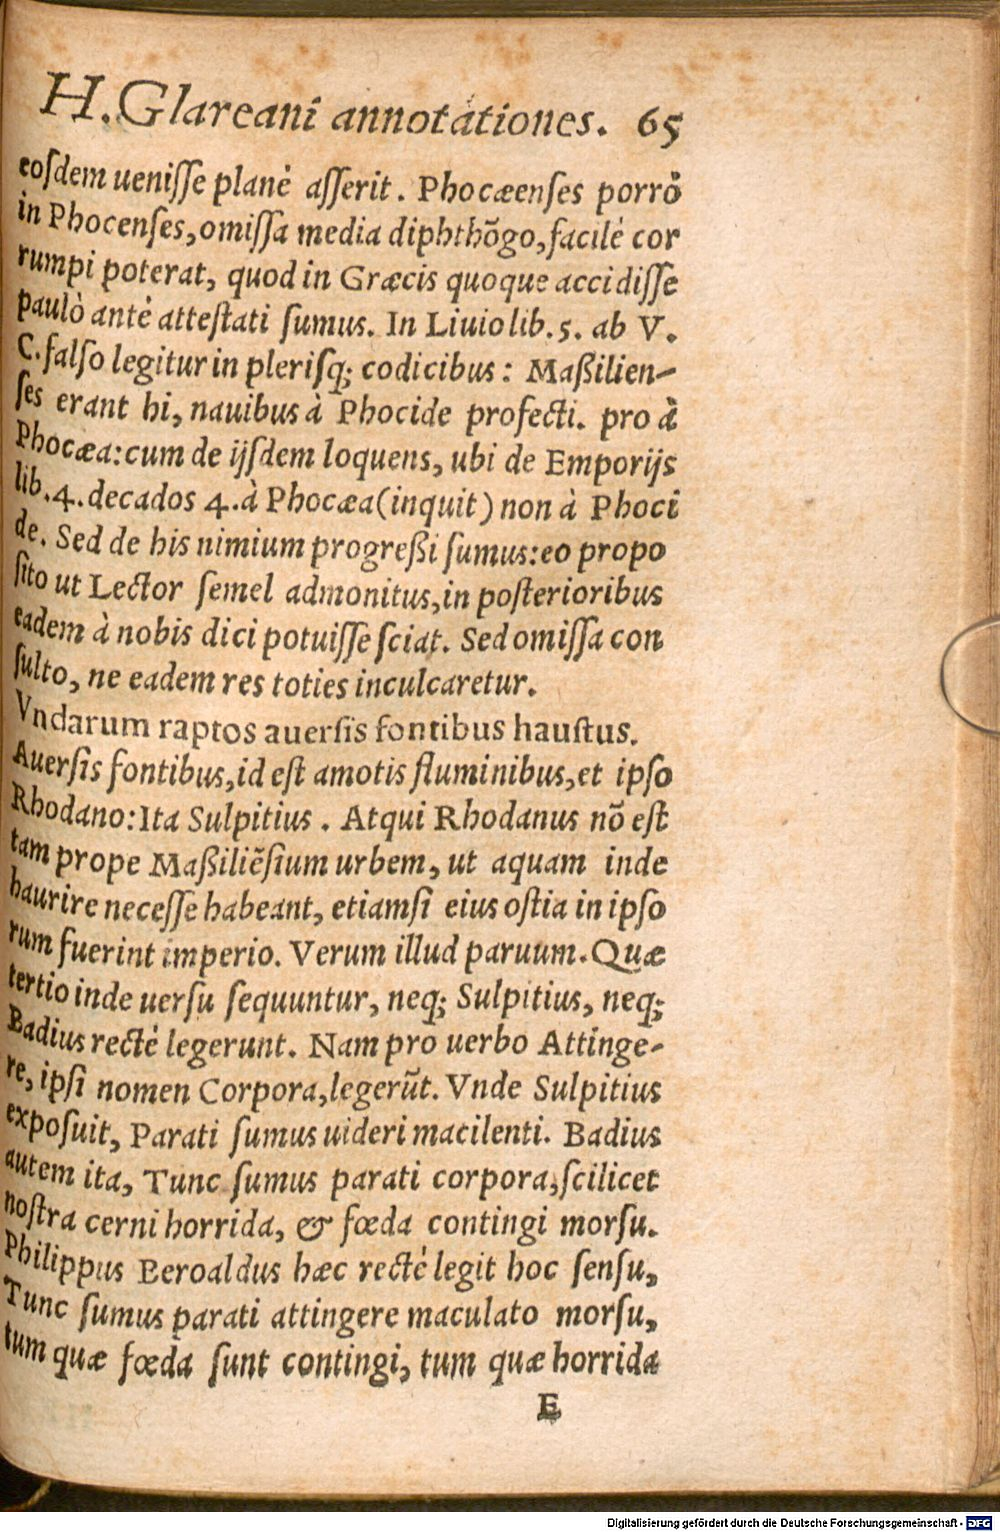 H. Glareani annotationes. 65
eoſdem ueniſſe planè aſſerit. Phocæenſes porrò
in Phocenſes, omiſſa media diphthõgo, facilè cor
rumpi poterat, quod in Græcis quoque accidiſſe
paulò antè atteſtati ſumus. In Liuio lib. 5. ab V.
C. falſo legitur in pleriſq; codicibus: Maßilien-
ſes erant hi, nauibus à Phocide profecti. pro à
Phocæa: cum de ijſdem loquens, ubi de Emporijs
lib. 4. decados 4. à Phocæa (inquit) non à Phoci
de. Sed de his nimium progreßi ſumus: eo propo
ſito ut Lector ſemel admonitus, in poſterioribus
eadem à nobis dici potuiſſe ſciat. Sed omiſſa con
ſulto, ne eadem res toties inculcaretur.
Vndarum raptos auerſis fontibus hauſtus.
Auerſis fontibus, id eſt amotis fluminibus, et ipſo
Rhodano: Ita Sulpitius. Atqui Rhodanus nõ eſt
tam prope Maßiliẽſium urbem, ut aquam inde
haurire neceſſe habeant, etiamſi eius oſtia in ipſo
rum fuerint imperio. Verum illud paruum. Quæ
tertio inde uerſu ſequuntur, neq; Sulpitius, neq;
Badius rectè legerunt. Nam pro uerbo Attinge-
re, ipſi nomen Corpora, legerũt. Vnde Sulpitius
expoſuit, Parati ſumus uideri macilenti. Badius
autem ita, Tunc ſumus parati corpora, ſcilicet
noſtra cerni horrida, & fœda contingi morſu.
Philippus Beroaldus hæc rectè legit hoc ſenſu,
Tunc ſumus parati attingere maculato morſu,
tum quæ fœda ſunt contingi, tum quæ horrida
E
Digitalisierung gefördert durch die Deutsche Forschungsgemeinschaft - DFG